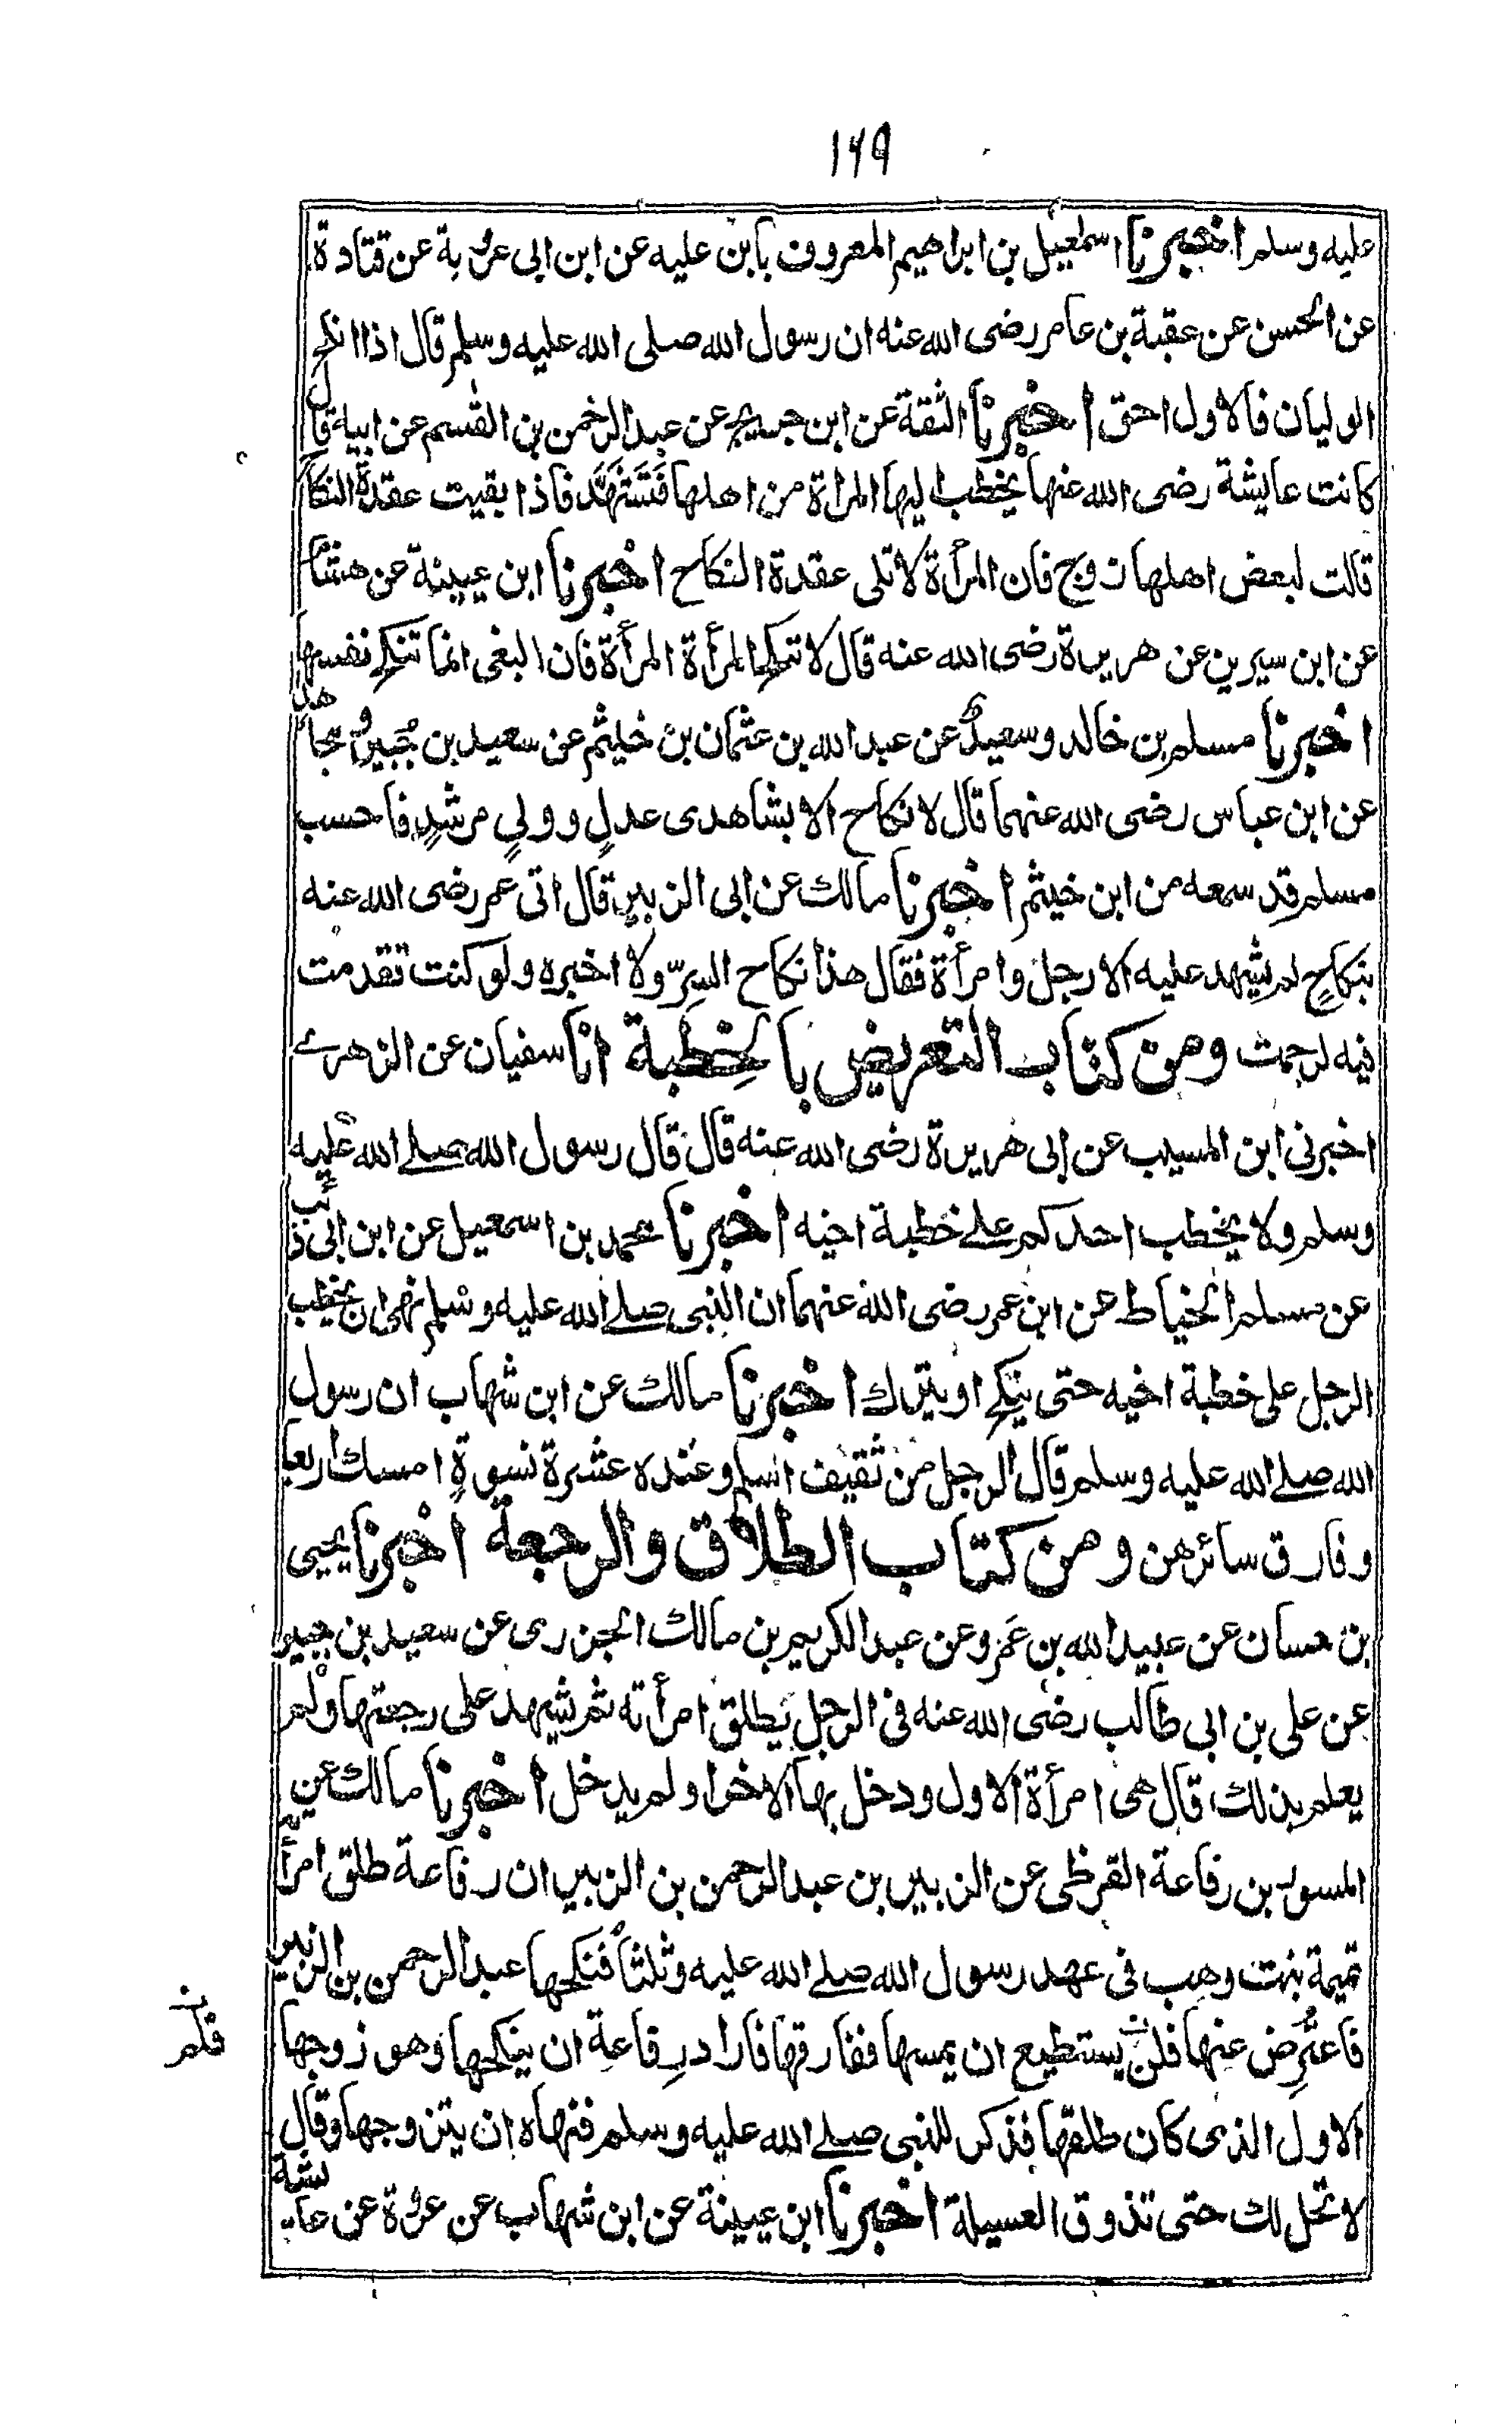 ١٦٩
عليه وسلم اخبرنا اسمعيل بن ابراهيم المعروف بابن عليه عن ابن ابى عروبة عن قتادة
عن الحسن عن عقبة بن عامر رضى الله عنه ان رسول الله صلى الله عليه وسلم قال اذا انكح
الوليان فالاول احق اخبرنا الثقة عن ابن جريج عن عبد الرحمن بن القسم عن ابيه قال
كانت عايشة رضى الله عنها يخطب اليها المراة من اهلها فتشهد فاذا بقيت عقدة النكاح
قالت لبعض اهلها زوج فان المرأة لا تلى عقدة النكاح اخبرنا ابن عيينة عن هشام
عن ابن سيرين عن هريرة رضى الله عنه قال لا تنكح المرأة المرأة فان البغى انما تنكح نفسها
اخبرنا مسلم بن خالد وسعيد عن عبد الله بن عثمان بن خيثم عن سعيد بن جُبير ومجاهد
عن ابن عباس رضى الله عنهما قال لا نكاح الا بشاهدى عدلٍ وولىٍ مرشدٍ فاحسب
مسلم قد سمعه من ابن خيثم اخبرنا مالك عن ابى الزبير قال اتى عمر رضى الله عنه
بنكاحٍ لم يشهد عليه الا رجل وامرأة فقال هذا نكاح السرّ ولا اخبره ولو كنت تقدمت
فيه لرجمت ومن كتاب التعريض بالخِطبة انا سفيان عن الزهرے
اخبرنى ابن المسيب عن ابى هريرة رضى الله عنه قال قال رسول الله صلے الله عليه
وسلم ولا يخطب احدكم علے خطبة اخيه اخبرنا محمد بن اسمعيل عن ابن ابى ذئب
عن مسلم الخياط عن ابن عمر رضى الله عنهما ان النبى صلے الله عليه وسلم نهى ان يخطب
الرجل على خطبة اخيه حتى ينكح او يترك اخبرنا مالك عن ابن شهاب ان رسول
الله صلے الله عليه وسلم قال لرجل من ثقيف اسلم وعنده عشرة نسوةٍ امسك اربعا
وفارق سائرهن ومن كتاب الطلاق والرجعة اخبرنا يحيى
بن حسان عن عبيد الله بن عَمرو عن عبد الكريم بن مالك الجزرى عن سعيد بن جبير
عن على بن ابى طالب رضى الله عنه فى الرجل يطلق امرأته ثم شيهد على رجعتها ولم
يعلم بذلك قال هى امرأة الاول ودخل بها الاخر او لم يدخل اخبرنا مالك عن
المسور بن رفاعة القرظى عن الزبير بن عبد الرحمن بن الزبير ان رفاعة طلق امرأته
تميمة بنت وهب فى عهد رسول الله صلے الله عليه وثلثاً فنكحها عبد الرحمن بن الزبير
فاعترِض عنها فلن يستطيع ان يمسها ففارقها فاراد رفاعة ان ينكحها وهو زوجها
فلم
الاول الذى كان طلقها فذكر للنبى صلے الله عليه وسلم فنهاه ان يتزوجها وقال
لا تحل لك حتى تذوق العسيلة اخبرنا ابن عيينة عن ابن شهاب عن عروة عن عايشة